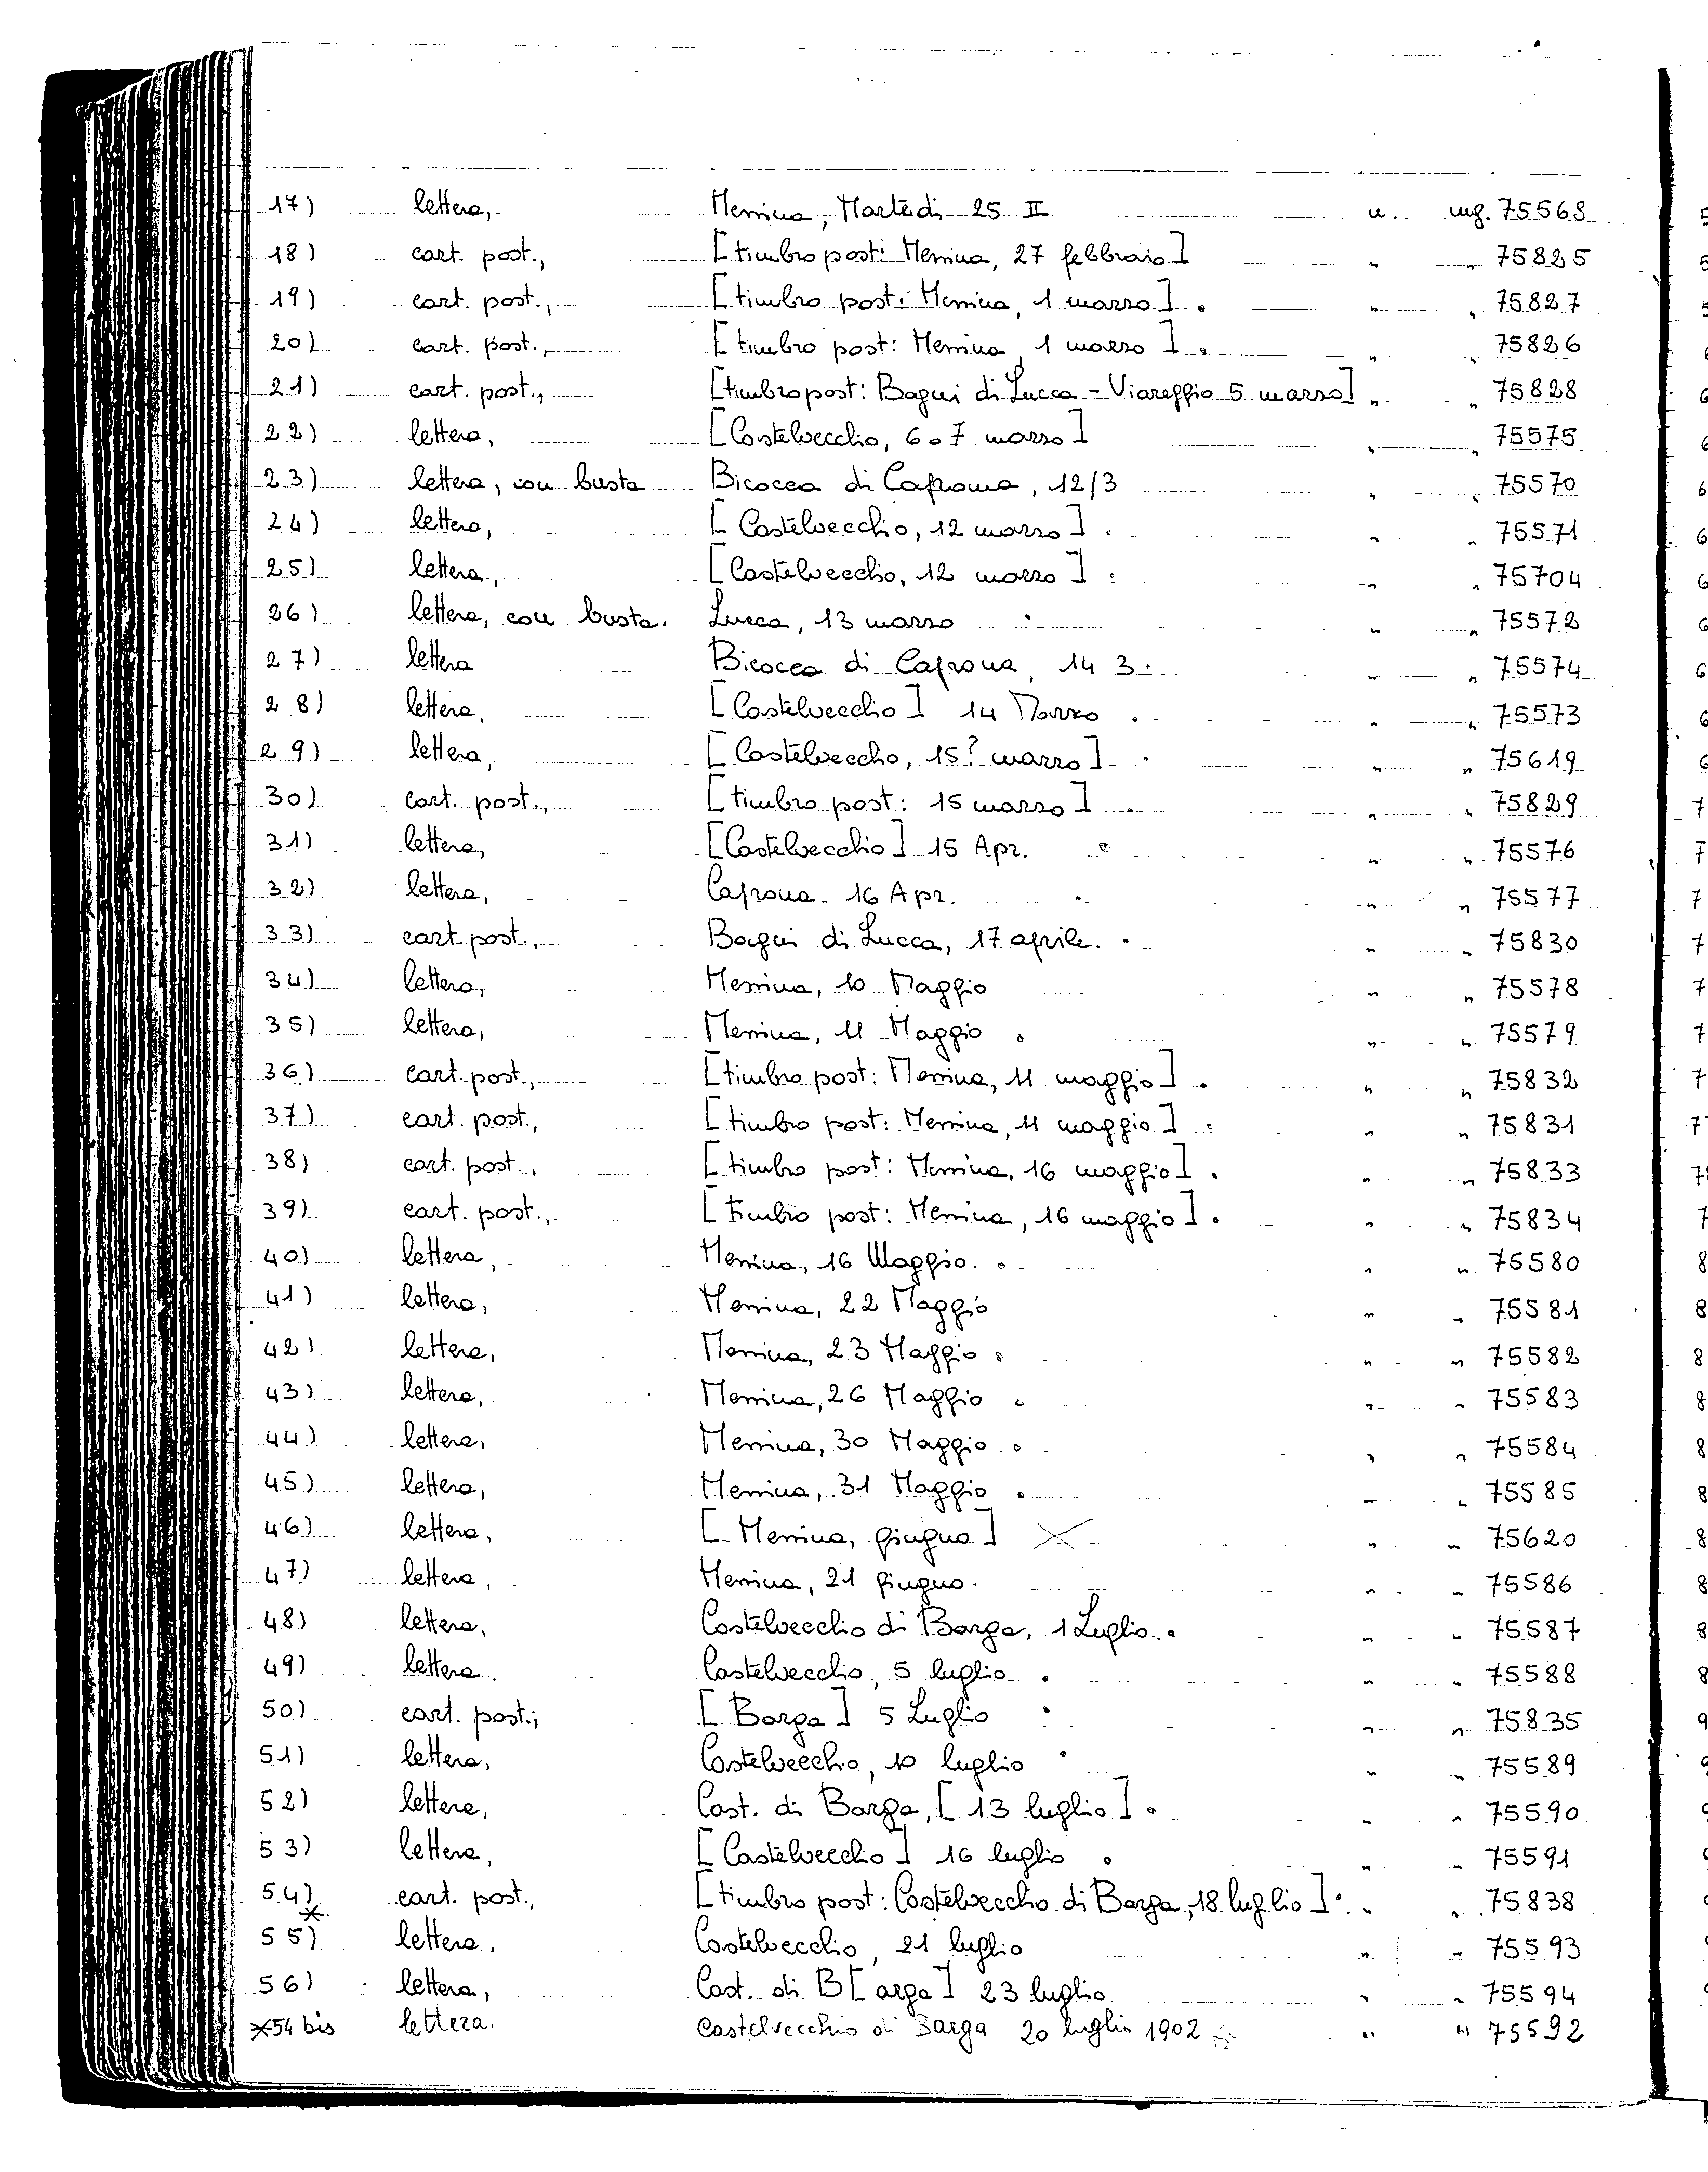 17) lettera, Messina, Martedì 25 II n. ing. 75568
18) cart. post., [timbro post: Messina, 27 febbraio] " " 75825
19) cart. post., [timbro post: Messina, 1 marzo]. " " 75827
20) cart. post., [timbro post: Messina, 1 marzo]. " " 75826
21) cart. post., [timbro post: Bagni di Lucca - Viareggio 5 marzo] " " 75828
22) lettera, [Castelvecchio, 6 o 7 marzo] " " 75575
23) lettera, con busta Bicocca di Caprona, 12/3 " " 75570
24) lettera, [Castelvecchio, 12 marzo]. " " 75571
25) lettera, [Castelvecchio, 12 marzo]. " " 75704
26) lettera, con busta. Lucca, 13 marzo " " 75572
27) lettera Bicocca di Caprona, 14 3. " " 75574
28) lettera, [Castelvecchio] 14 Marzo. " " 75573
29) lettera, [Castelveccho, 15? marzo]. " " 75619
30) cart. post., [timbro post: 15 marzo]. " " 75829
31) lettera, [Castelvecchio] 15 Apr. " " 75576
32) lettera, Caprona 16 Apr. " " 75577
33) cart. post., Bagni di Lucca, 17 aprile. " " 75830
34) lettera, Messina, 10 Maggio " " 75578
35) lettera, Messina, 11 Maggio. " " 75579
36) cart. post., [timbro post: Messina, 11 maggio]. " " 75832
37) cart. post., [timbro post: Messina, 11 maggio]. " " 75831
38) cart. post., [timbro post: Messina, 16 maggio]. " " 75833
39) cart. post., [timbro post: Messina, 16 maggio]. " " 75834
40) lettera, Messina, 16 Maggio. " " 75580
41) lettera, Messina, 22 Maggio " " 75581
42) lettera, Messina, 23 Maggio. " " 75582
43) lettera, Messina, 26 Maggio. " " 75583
44) lettera, Messina, 30 Maggio. " " 75584
45) lettera, Messina, 31 Maggio. " " 75585
46) lettera, [Messina, giugno] X " " 75620
47) lettera, Messina, 21 giugno. " " 75586
48) lettera, Castelvecchio di Barga, 1 Luglio. " " 75587
49) lettera. Castelvecchio, 5 luglio. " " 75588
50) cart. post.; [Barga] 5 Luglio " " 75835
51) lettera, Castelvecchio, 10 luglio " " 75589
52) lettera, Cast. di Barga, [13 luglio]. " " 75590
53) lettera, [Castelvecchio] 16 luglio. " " 75591
54) cart. post., [timbro post: Castelveccho di Barga, 18 luglio]. " " 75838
*
55) lettera, Castelvecchio, 21 luglio " " 75593
56) lettera, Cast. di B[arga] 23 luglio " " 75594
*54 bis lettera. Castelvecchio di Barga 20 luglio 1902 " " 75592